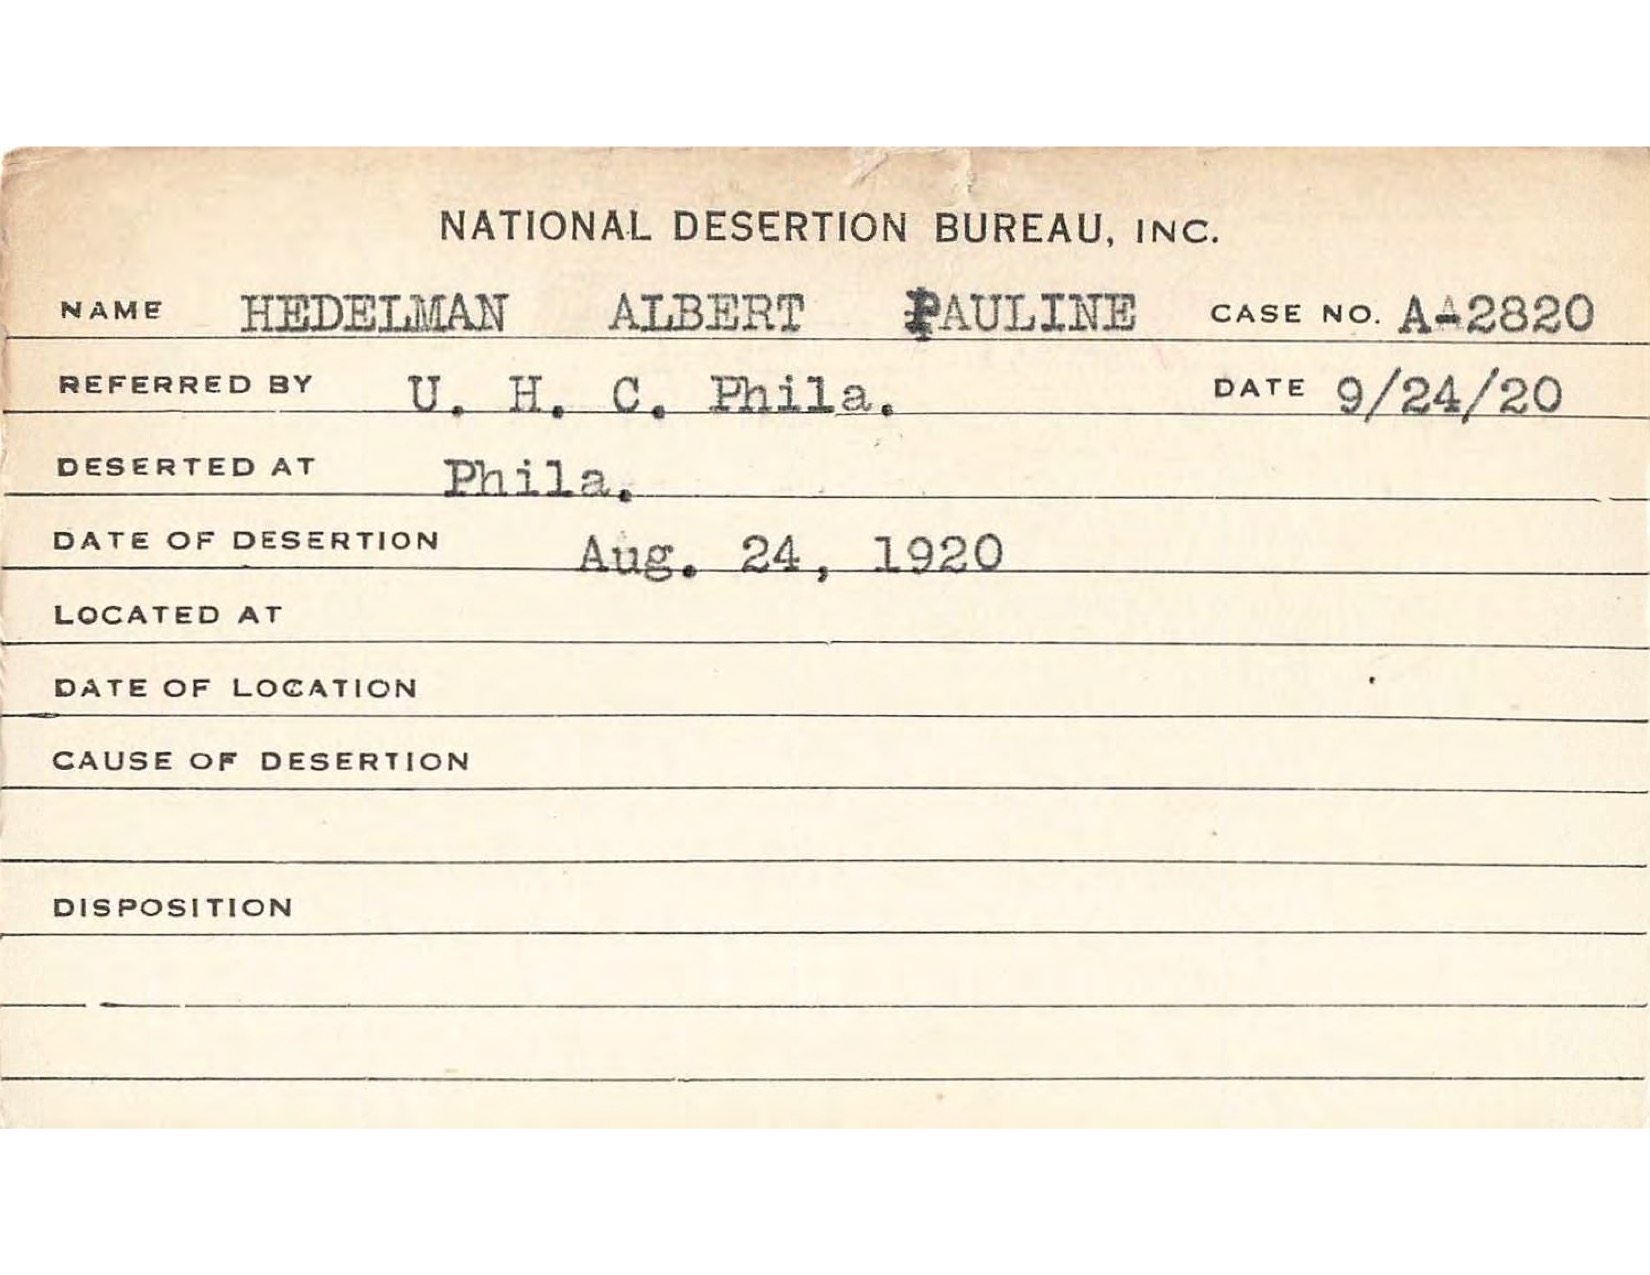 NATIONAL DESERTION BUREAU, INC.
NAME HEDELMAN ALBERT PAULINE CASE NO. A-2820
REFERRED BY U. H. C. Phila. DATE 9/24/20
DESERTED AT Phila.
DATE OF DESERTION Aug. 24, 1920
LOCATED AT
DATE OF LOCATION
CAUSE OF DESERTION
DISPOSITION